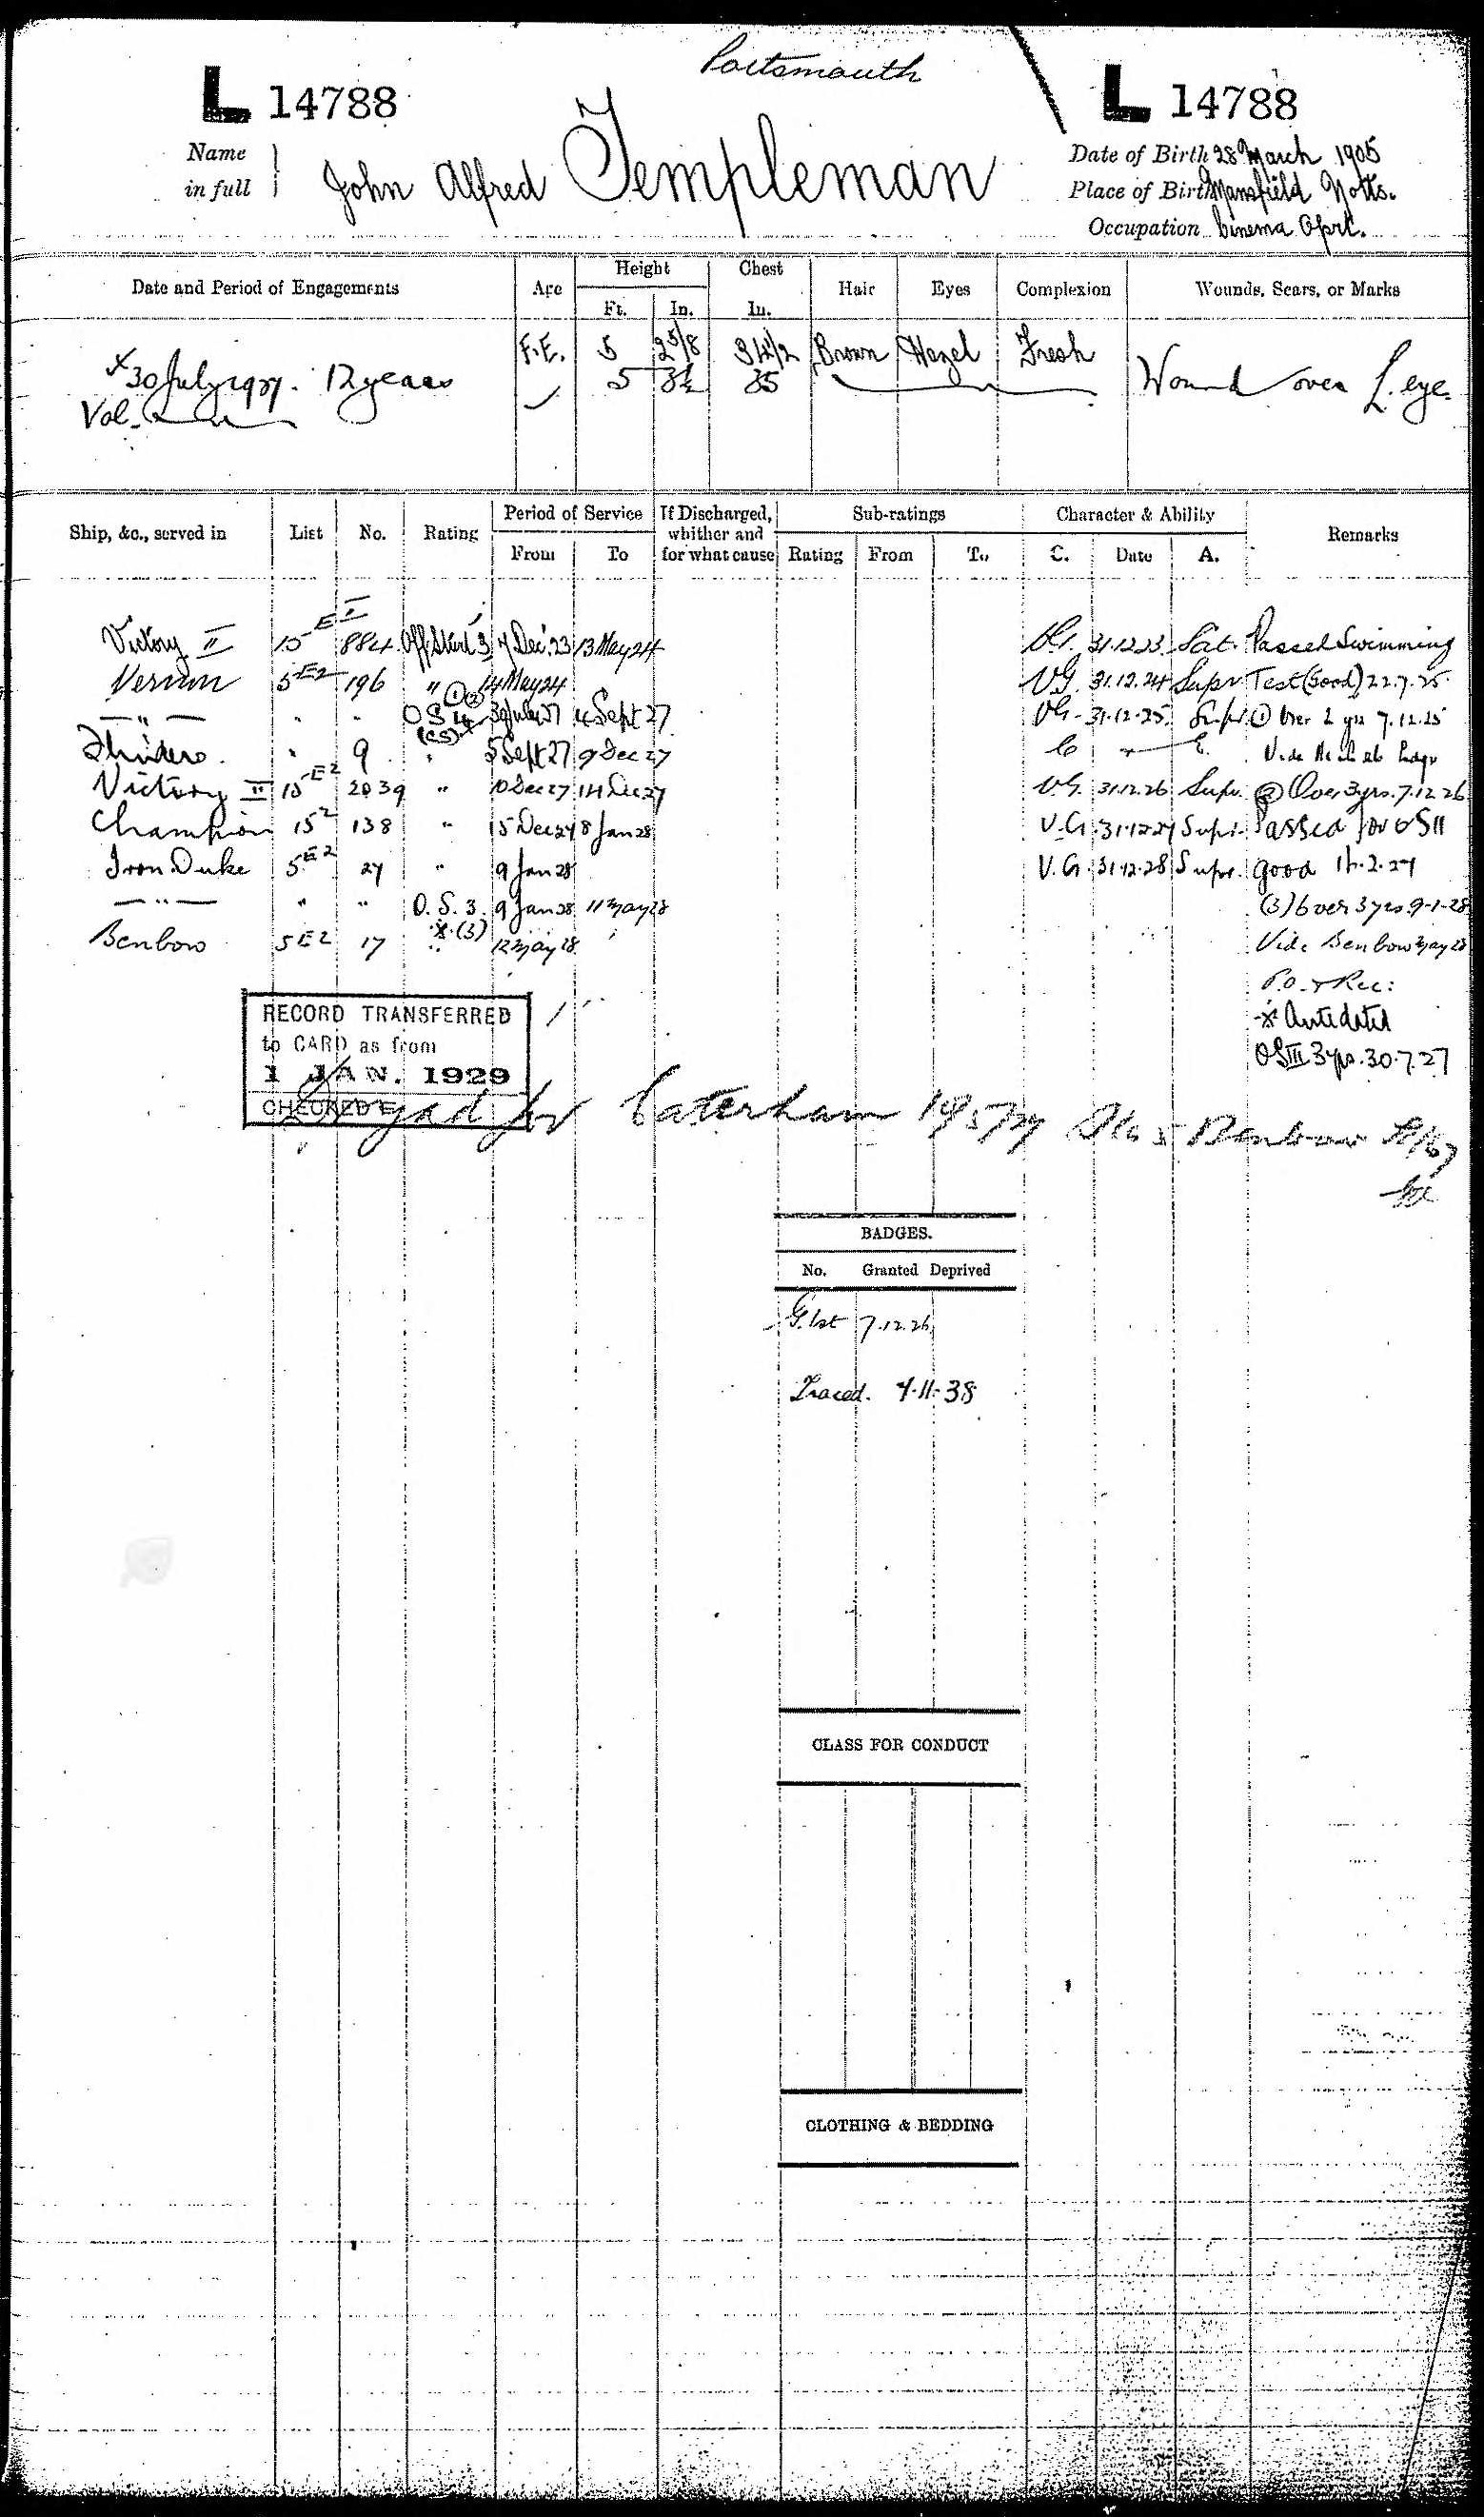 Portsmouth
L 14788
L 14788
Name in full
John Alfred Templeman
Date of Birth 28 March 1905
Place of Birth Mansfield Notts.
Occupation Cinema Oprt.
Date and Period of Engagements Age Height Ft. In. Chest In. Hair Eyes Complexion Wounds, Scars, or Marks
F.E. 5 2 5/8 34 1/2 Brown Hazel Fresh
30 July 1927. 12 years 5 3 1/2 35 Wound over L. eye.
Vol.
Ship, &c., served in List No. Rating Period of Service If Discharged, whither and for what cause Sub-ratings Character & Ability Remarks
From To Rating From To C. Date A.
Victory II 15 E I 884 Off. Stwd 3 7 Dec. 23 13 May 24 V.G. 31.12.23 Sat. Passed Swimming
Vernon 5 E2 196 " 14 May 24 VG. 31.12.24 Supr. Test (Good) 22.7.25
— " — " " OS 4 (CS) 30 July 27 4 Sept 27 VG. 31.12.25 Supr. ① Over 2 yrs 7.12.25
" 9 " 5 Sept 27 9 Dec 27 Vide
Victory II 15 E2 2039 " 10 Dec 27 14 Dec 27 V.G. 31.12.26 Supr. ② Over 3 yrs. 7.12.26
Champion 15 2 138 " 15 Dec 27 8 Jan 28 V.G. 31.12.27 Supr. Passed for OS II
Iron Duke 5 E2 27 " 9 Jan 28 V.G. 31.12.28 Supr. good
— " — " " O.S. 3. 9 Jan 28 11 May 28 (3) Over 3 yrs. 9-1-28
Benbow 5 E2 17 (3) " 12 May 28 Vide Benbow May 28
P.O. & Rec:
* Antedated
OS III 3 yrs. 30.7.27
RECORD TRANSFERRED
to CARD as from
1 JAN. 1929
CHECKED
for Caterham Benbow
BADGES.
No. Granted Deprived
G. 1st 7.12.26
Traced. 4.11.38
CLASS FOR CONDUCT
CLOTHING & BEDDING